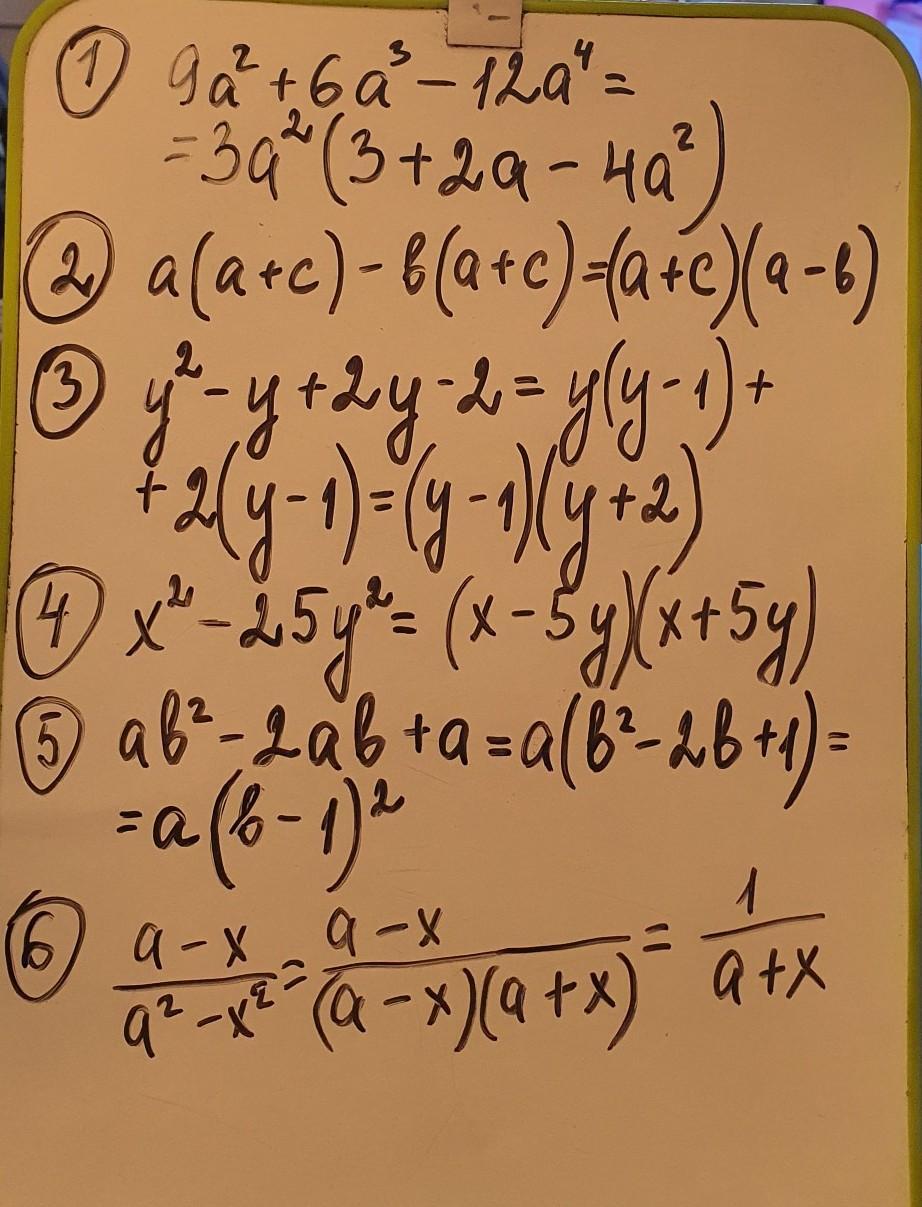 ① 9a² + 6a³ - 12a⁴ =
= 3a² (3 + 2a - 4a²)
② a(a+c) - в(a+c) = (a+c)(a-в)
③ y² - y + 2y - 2 = y(y-1) +
+ 2(y-1) = (y-1)(y+2)
④ x² - 25y² = (x-5y)(x+5y)
⑤ aв² - 2aв + a = a(в² - 2в + 1) =
= a(в-1)²
⑥ (a-x)/(a²-x²) = (a-x)/((a-x)(a+x)) = 1/(a+x)